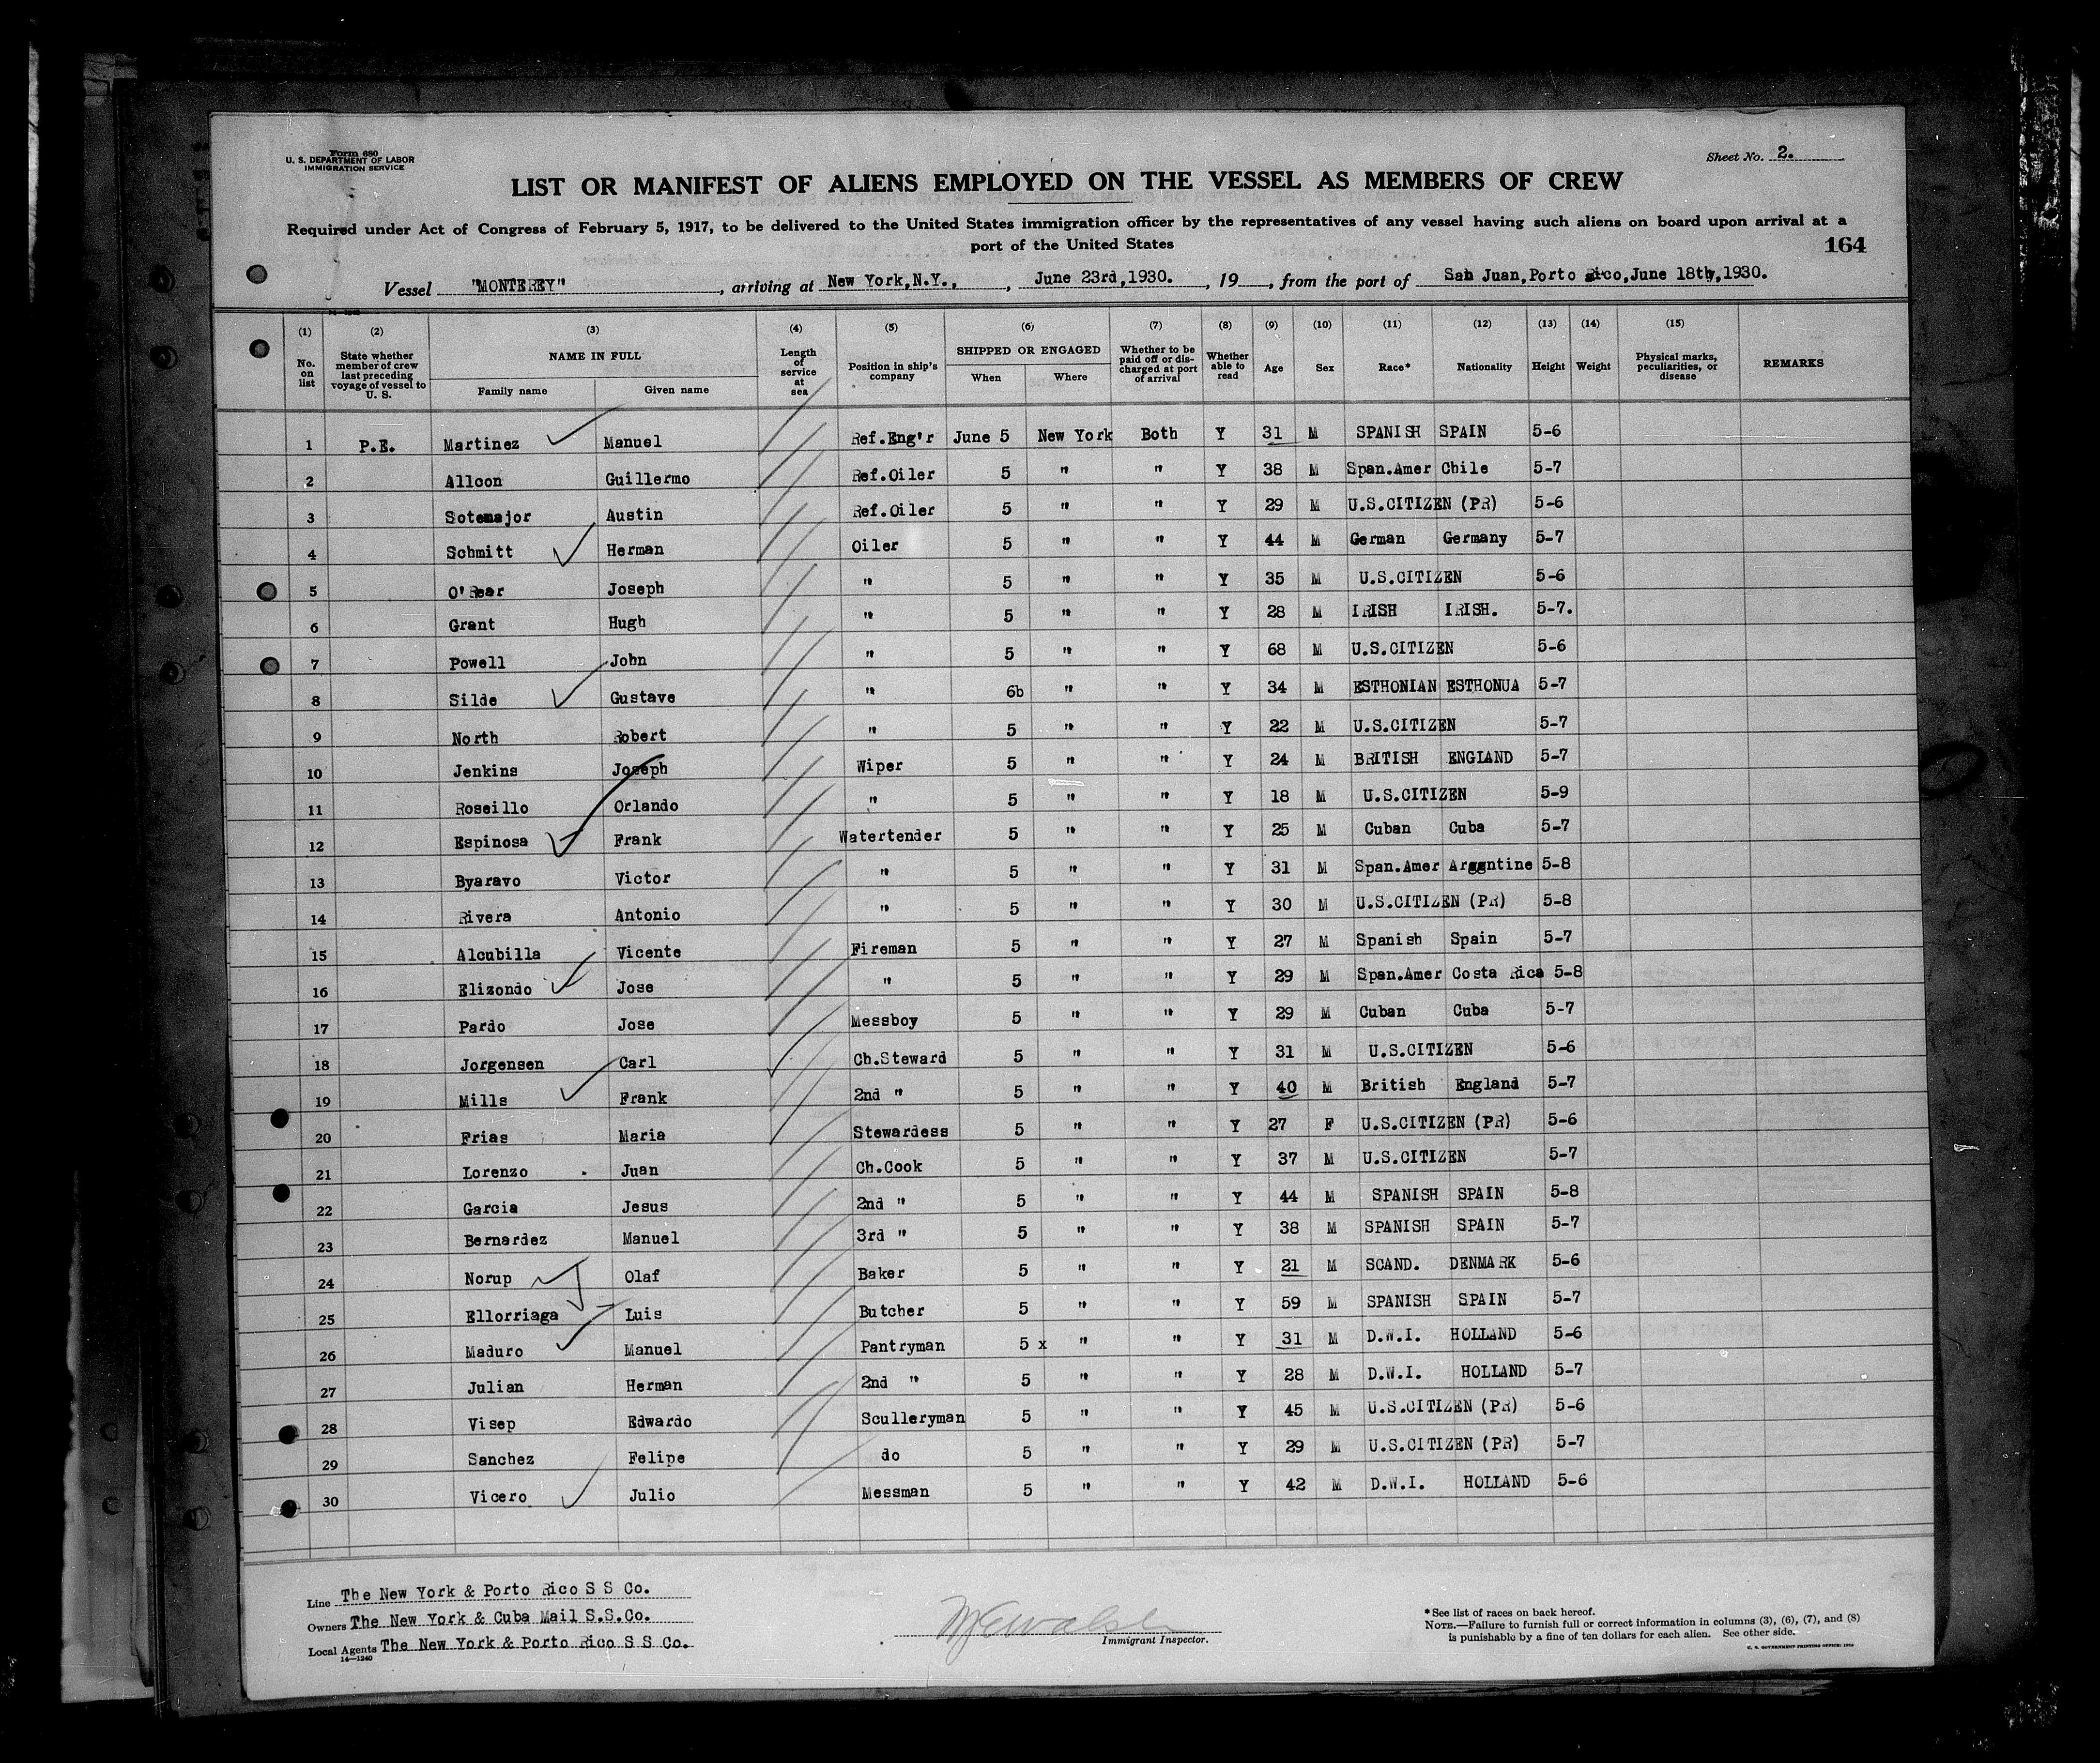 Form 680
U. S. DEPARTMENT OF LABOR
IMMIGRATION SERVICE
Sheet No. 2.
LIST OR MANIFEST OF ALIENS EMPLOYED ON THE VESSEL AS MEMBERS OF CREW
Required under Act of Congress of February 5, 1917, to be delivered to the United States immigration officer by the representatives of any vessel having such aliens on board upon arrival at a
port of the United States
164
Vessel "MONTEREY", arriving at New York,N.Y., , June 23rd,1930. , 19 , from the port of San Juan,Porto Rico,June 18th,1930.
(1) (2) (3) (4) (5) (6) (7) (8) (9) (10) (11) (12) (13) (14) (15)
No. on list State whether member of crew last preceding voyage of vessel to U. S. NAME IN FULL Family name Given name Length of service at sea Position in ship's company SHIPPED OR ENGAGED When Where Whether to be paid off or discharged at port of arrival Whether able to read Age Sex Race* Nationality Height Weight Physical marks, peculiarities, or disease REMARKS
1 P.E. Martinez Manuel Ref.Eng'r June 5 New York Both Y 31 M SPANISH SPAIN 5-6
2 Allcon Guillermo Ref.Oiler 5 " " Y 38 M Span.Amer Chile 5-7
3 Sotemajor Austin Ref.Oiler 5 " " Y 29 M U.S.CITIZEN (PR) 5-6
4 Schmitt Herman Oiler 5 " " Y 44 M German Germany 5-7
5 O'Rear Joseph " 5 " " Y 35 M U.S.CITIZEN 5-6
6 Grant Hugh " 5 " " Y 28 M IRISH IRISH. 5-7.
7 Powell John " 5 " " Y 68 M U.S.CITIZEN 5-6
8 Silde Gustave " 6b " " Y 34 M ESTHONIAN ESTHONUA 5-7
9 North Robert " 5 " " Y 22 M U.S.CITIZEN 5-7
10 Jenkins Joseph Wiper 5 " " Y 24 M BRITISH ENGLAND 5-7
11 Roseillo Orlando " 5 " " Y 18 M U.S.CITIZEN 5-9
12 Espinosa Frank Watertender 5 " " Y 25 M Cuban Cuba 5-7
13 Byaravo Victor " 5 " " Y 31 M Span.Amer Arggntine 5-8
14 Rivera Antonio " 5 " " Y 30 M U.S.CITIZEN (PR) 5-8
15 Alcubilla Vicente Fireman 5 " " Y 27 M Spanish Spain 5-7
16 Elizondo Jose " 5 " " Y 29 M Span.Amer Costa Rica 5-8
17 Pardo Jose Messboy 5 " " Y 29 M Cuban Cuba 5-7
18 Jorgensen Carl Ch.Steward 5 " " Y 31 M U.S.CITIZEN 5-6
19 Mills Frank 2nd " 5 " " Y 40 M British England 5-7
20 Frias Maria Stewardess 5 " " Y 27 F U.S.CITIZEN (PR) 5-6
21 Lorenzo Juan Ch.Cook 5 " " Y 37 M U.S.CITIZEN 5-7
22 Garcia Jesus 2nd " 5 " " Y 44 M SPANISH SPAIN 5-8
23 Bernardez Manuel 3rd " 5 " " Y 38 M SPANISH SPAIN 5-7
24 Norup Olaf Baker 5 " " Y 21 M SCAND. DENMARK 5-6
25 Ellorriaga Luis Butcher 5 " " Y 59 M SPANISH SPAIN 5-7
26 Maduro Manuel Pantryman 5 x " " Y 31 M D.W.I. HOLLAND 5-6
27 Julian Herman 2nd " 5 " " Y 28 M D.W.I. HOLLAND 5-7
28 Visep Edwardo Sculleryman 5 " " Y 45 M U.S.CITIZEN (PR) 5-6
29 Sanchez Felipe do 5 " " Y 29 M U.S.CITIZEN (PR) 5-7
30 Vicero Julio Messman 5 " " Y 42 M D.W.I. HOLLAND 5-6
Line The New York & Porto Rico S S Co.
Owners The New York & Cuba Mail S.S.Co.
Local Agents The New York & Porto Rico S S Co.
14—1240
Immigrant Inspector.
*See list of races on back hereof.
NOTE.—Failure to furnish full or correct information in columns (3), (6), (7), and (8)
is punishable by a fine of ten dollars for each alien. See other side.